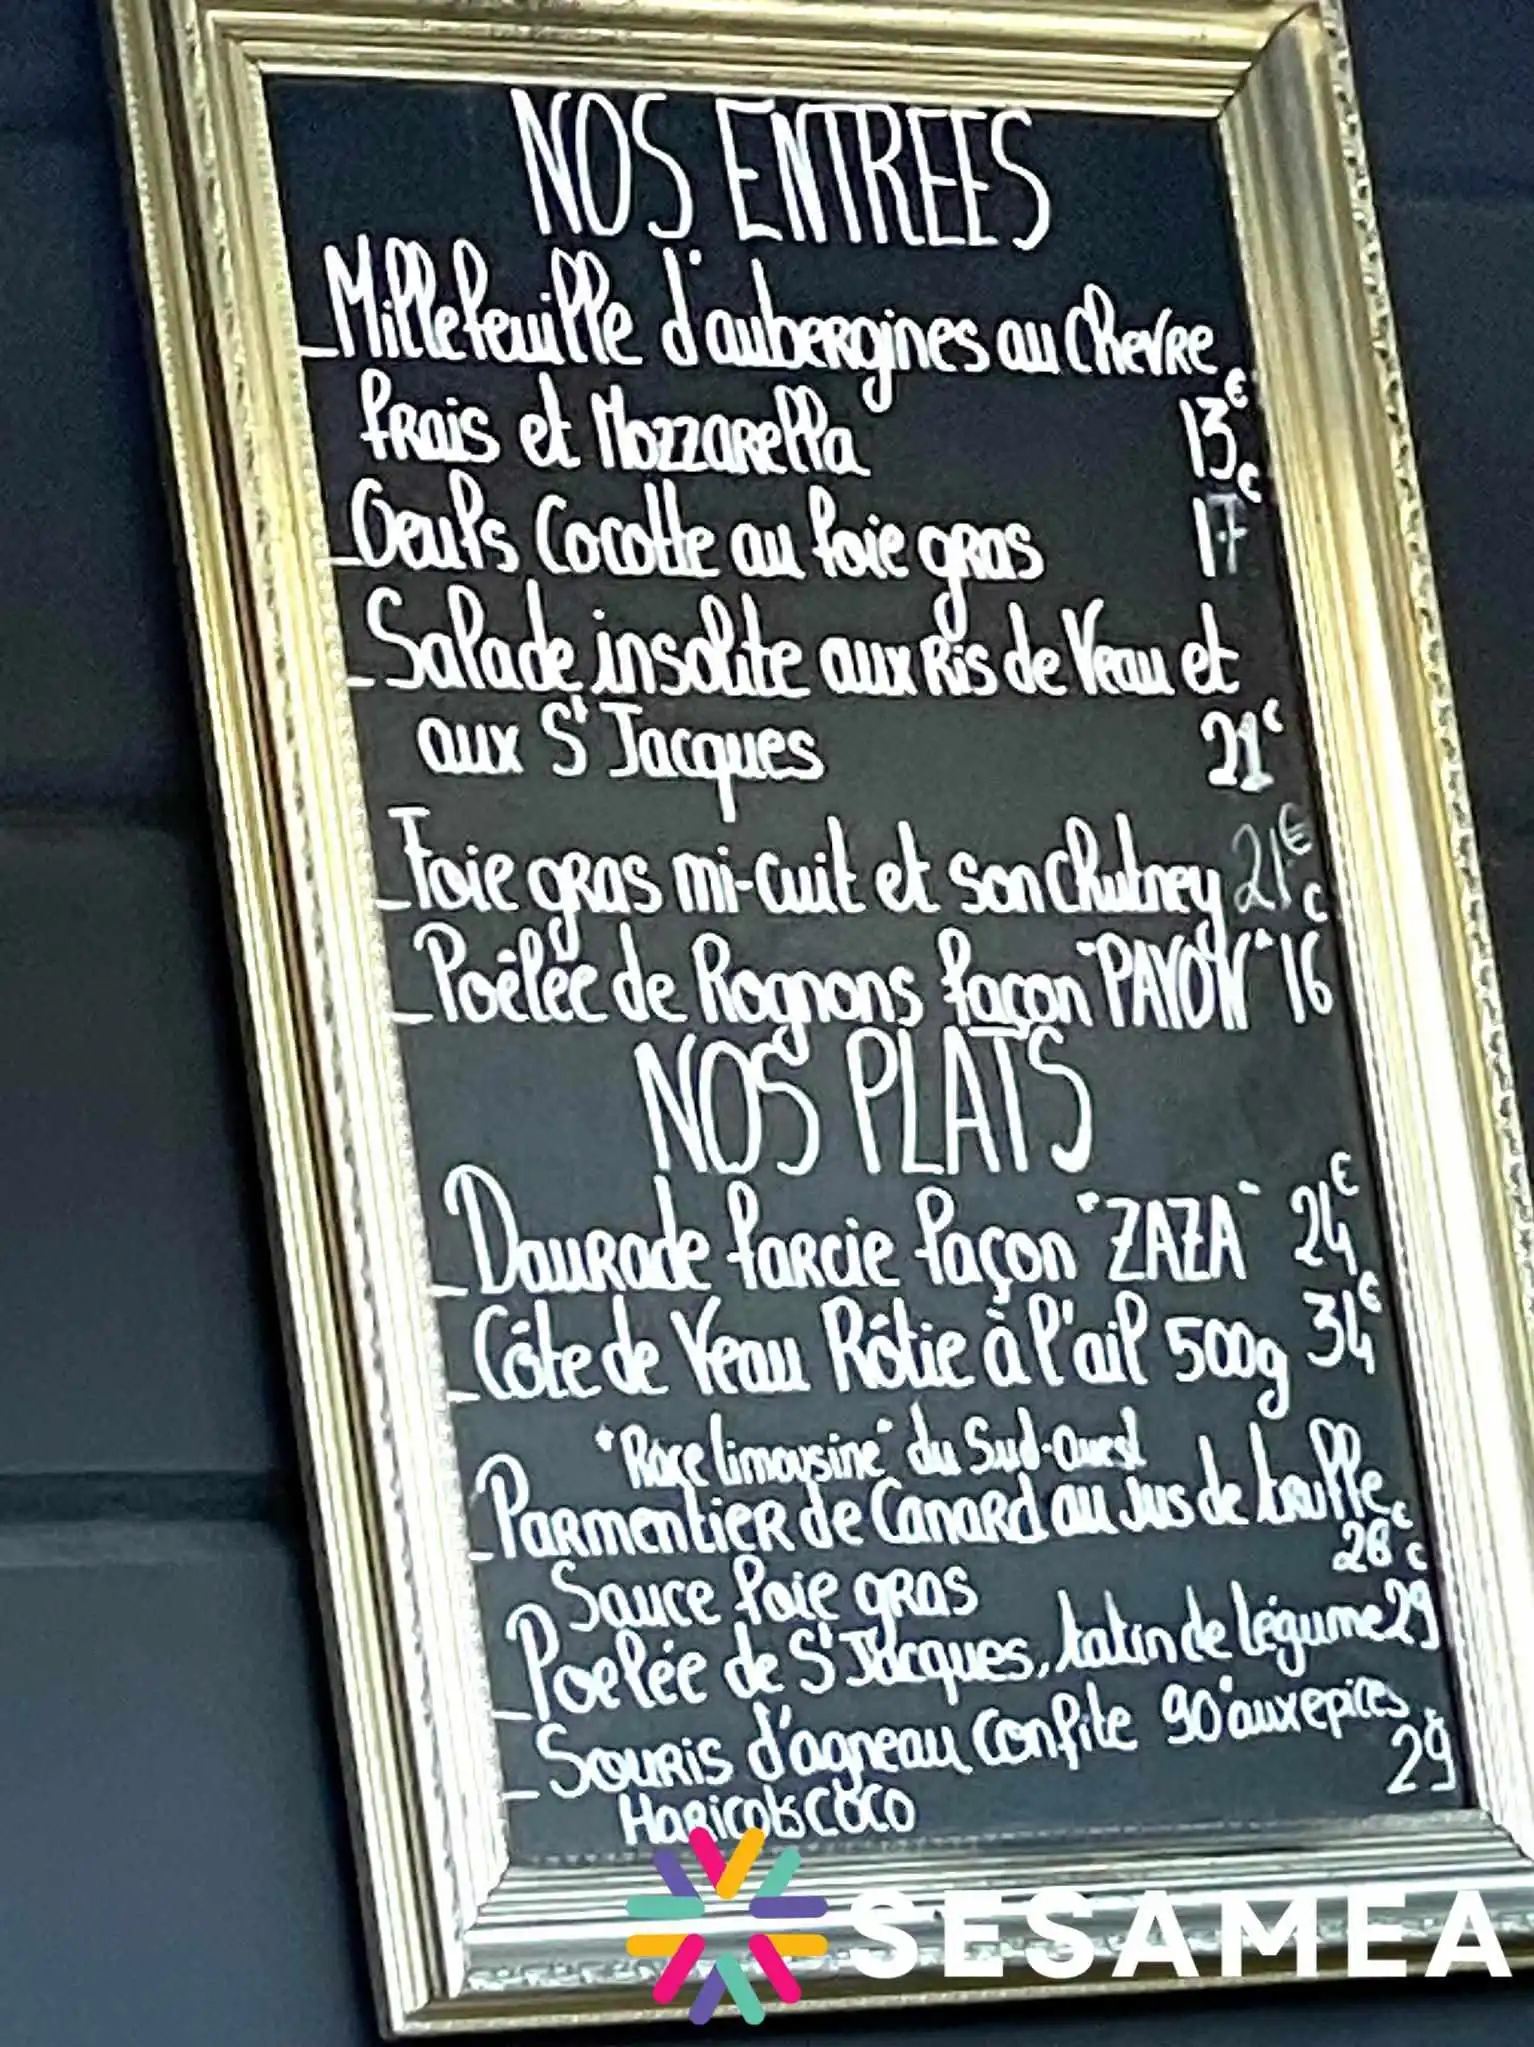 NOS ENTREES
_Millefeuille d'aubergines au Chevre
frais et Mozzarella 13€
_Oeufs Cocotte au foie gras 17€
_Salade insolite aux Ris de Veau et
aux St Jacques 21€
_Foie gras mi-cuit et son Chutney 21€
_Poêlée de Rognons façon "PAYON" 16€
NOS PLATS
_Daurade farcie façon "ZAZA" 24€
_Côte de Veau Rôtie à l'ail 500g 34€
"Race limousine" du Sud-Ouest
_Parmentier de Canard au Jus de truffe
Sauce foie gras €
_Poelée de St Jacques, tatin de légume 29€
_Souris d'agneau confite 90° aux epices
Haricots coco 29€
SESAMEA